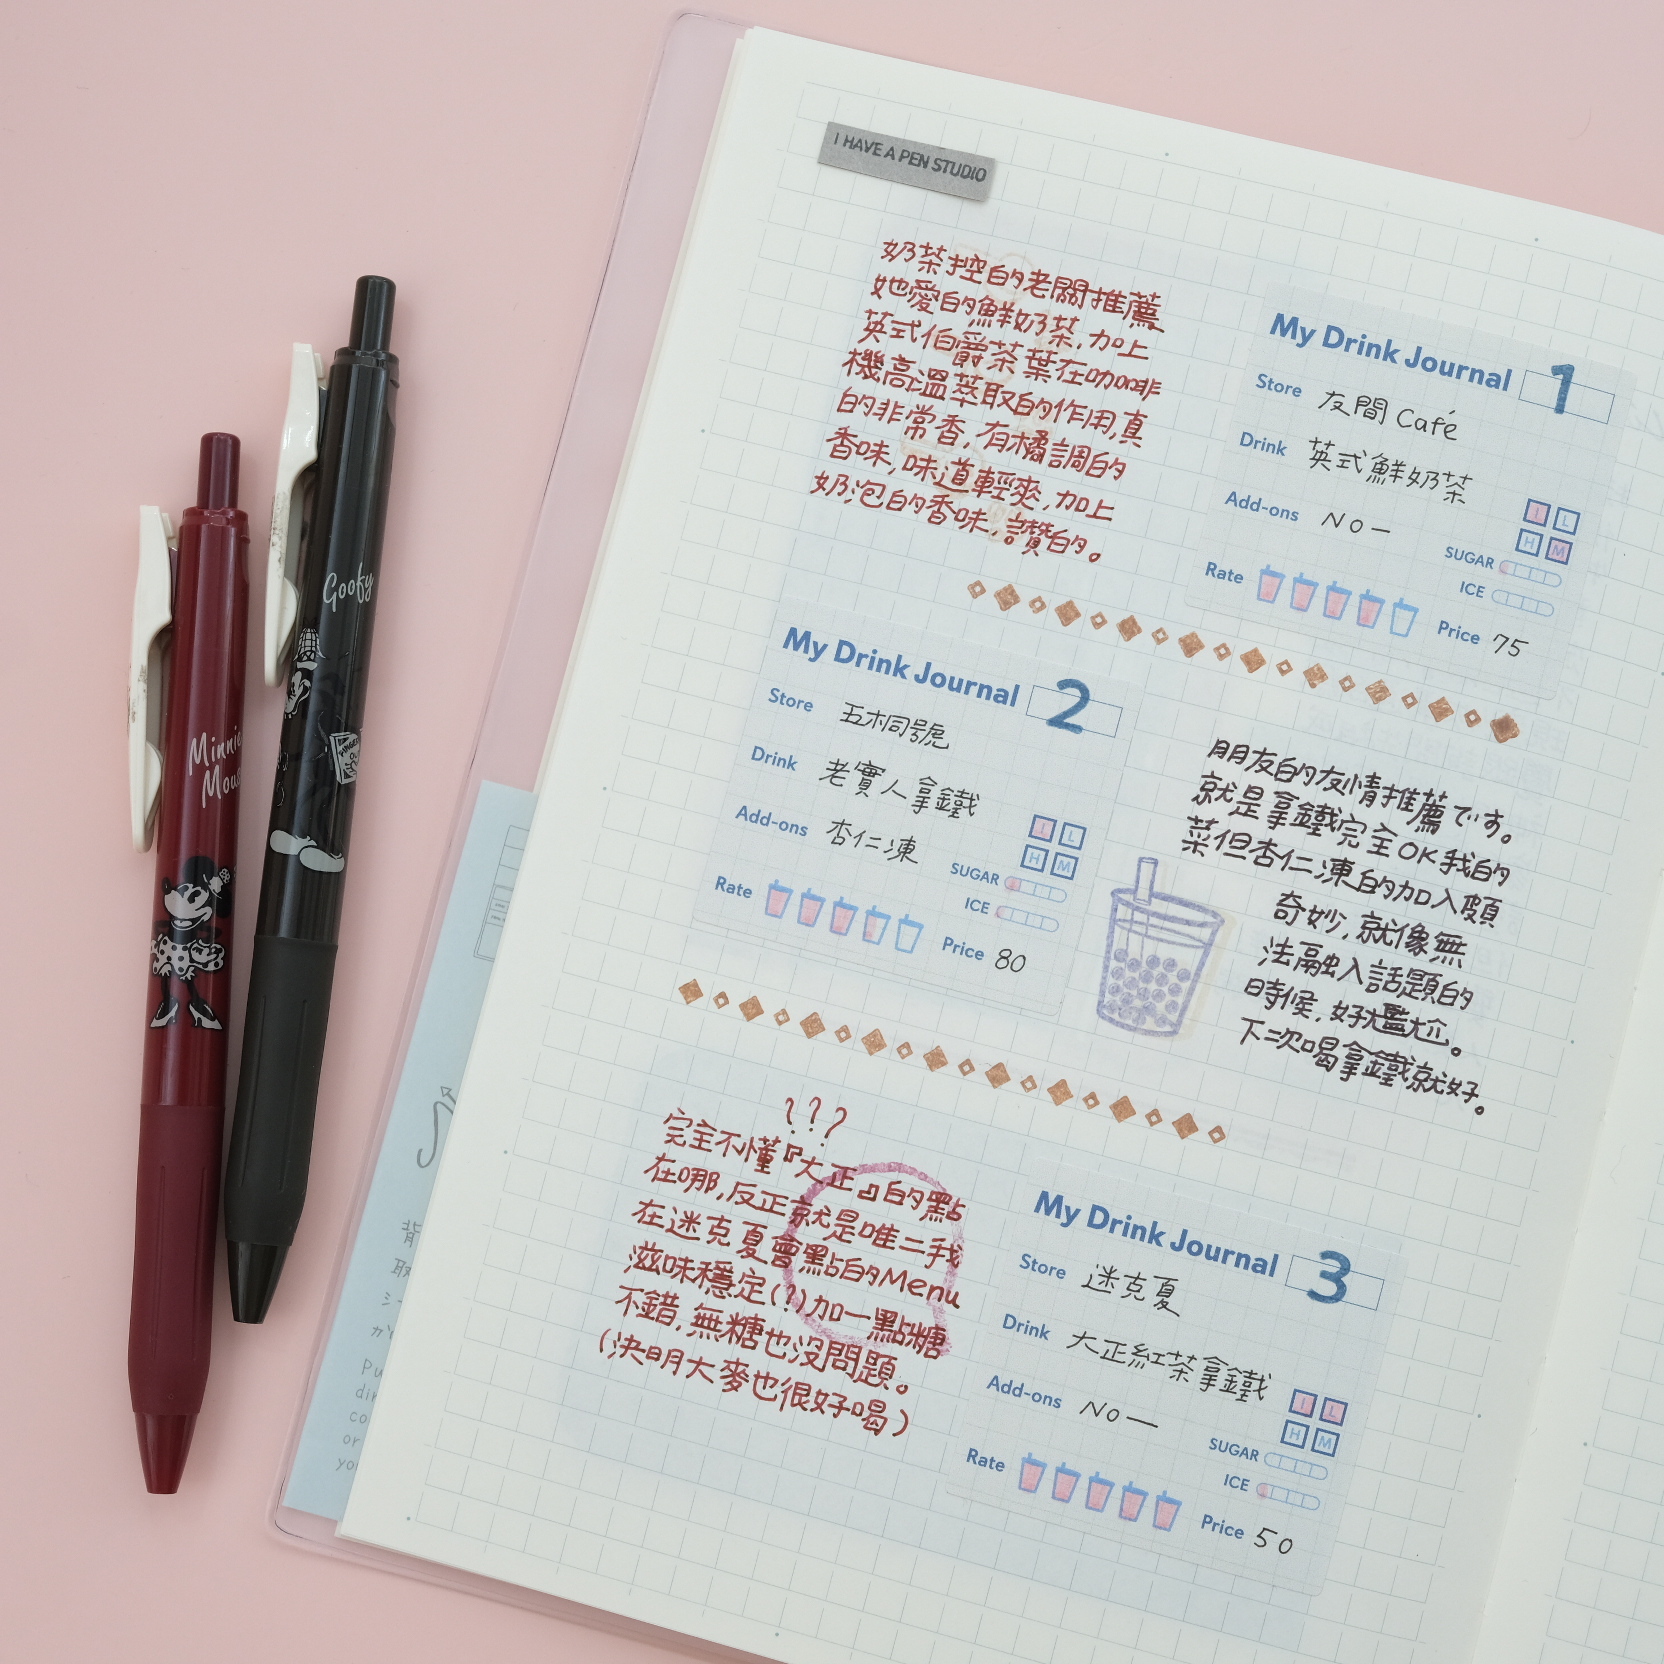 I HAVE A PEN STUDIO
奶茶控的老闆推薦
她愛的鮮奶茶,加上
英式伯爵茶葉在咖啡
機高溫萃取的作用,真
的非常香,有橘調的
香味,味道輕爽,加上
奶泡的香味,讚的。
My Drink Journal 1
Store 友間 Café
Drink 英式鮮奶茶
Add-ons No—
I L
H M
SUGAR
ICE
Rate
Price 75
My Drink Journal 2
Store 五木同號
Drink 老實人拿鐵
Add-ons 杏仁凍
I L
H M
SUGAR
ICE
Rate
Price 80
朋友的友情推薦です。
就是拿鐵完全OK我的
菜但杏仁凍的加入頗
奇妙,就像無
法融入話題的
時候,好尷尬。
下次喝拿鐵就好。
???
完全不懂『大正』的點
在哪,反正就是唯二我
在迷克夏會點的Menu
滋味穩定(?)加一點糖
不錯,無糖也沒問題。
(決明大麥也很好喝)
My Drink Journal 3
Store 迷克夏
Drink 大正紅茶拿鐵
Add-ons No—
I L
H M
SUGAR
ICE
Rate
Price 50
Goofy
Minnie
Mouse